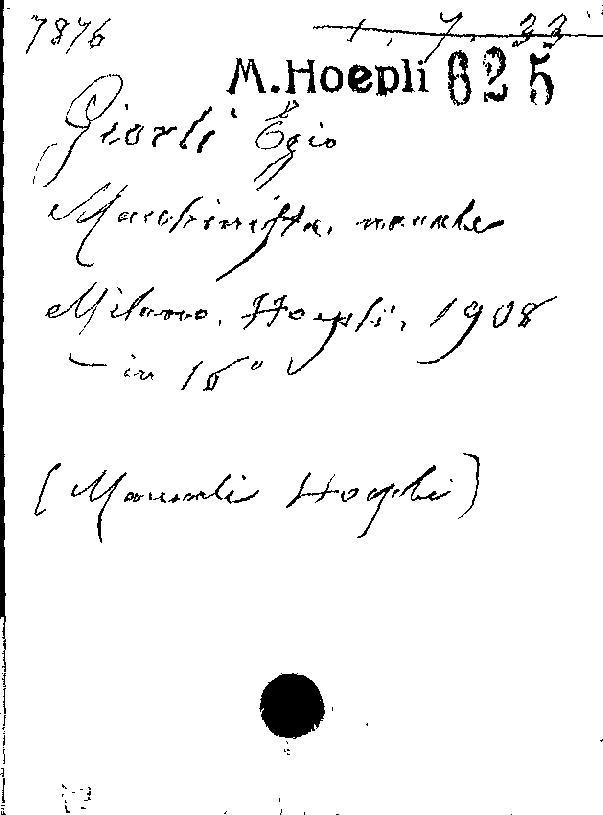 7876 1. 7. 33
M. Hoepli 625
Giorli Egio
Macchinista navale
Milano, Hoepli, 1908
- in 16°
(Manuali Hoepli)